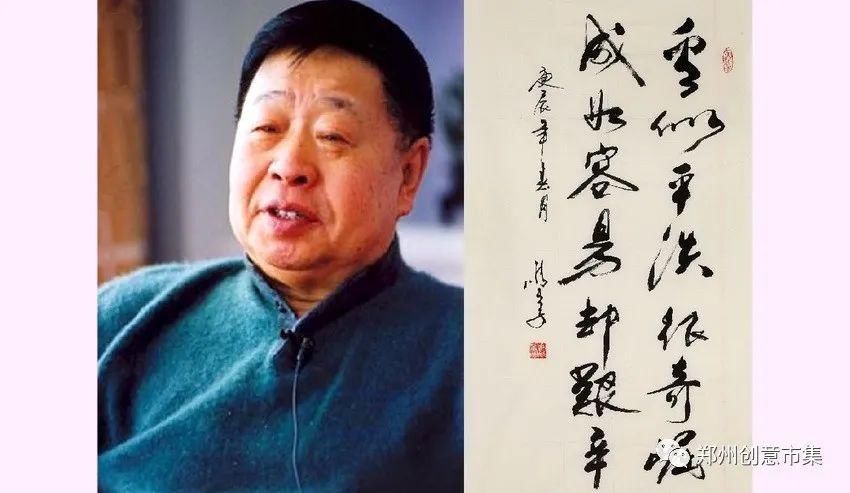 看似平淡很奇崛
成如容易却艰辛
庚辰年春月
郑州创意市集